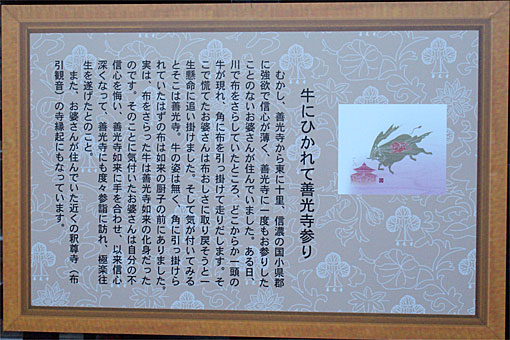 牛にひかれて善光寺参り
むかし、善光寺から東に十里、信濃の国小県郡
に強欲で信心が薄く、善光寺に一度もお参りした
ことのないお婆さんが住んでいました。ある日、
川で布をさらしていたところ、どこからか一頭の
牛が現れ、角に布を引っ掛けて走りだします。そ
こで慌てたお婆さんは布おしさに取り戻そうと一
生懸命に追い掛けました。そして気が付いてみる
とそこは善光寺。牛の姿は無く、角に引っ掛けら
れていたはずの布は如来の厨子の前にありました。
実は、布をさらった牛は善光寺如来の化身だった
のです。そのことに気付いたお婆さんは自分の不
信心を悔い、善光寺如来に手を合わせ、以来信心
深くなって、善光寺にも度々参詣に訪れ、極楽往
生を遂げたとのこと。
また、お婆さんが住んでいた近くの釈尊寺（布
引観音）の寺縁起にもなっています。